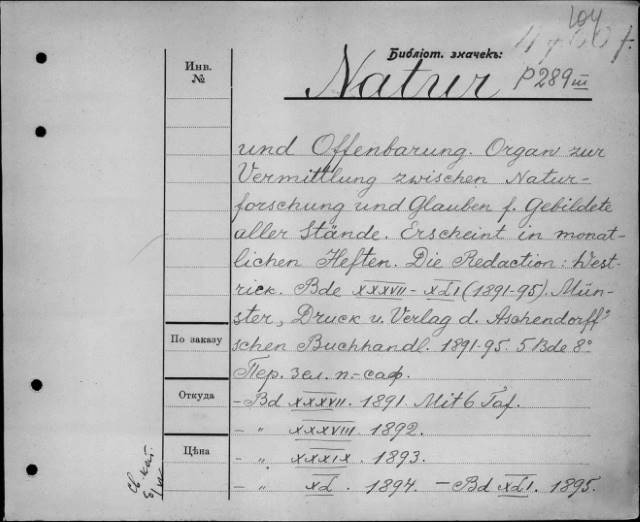 104
Библіот. значекъ:
Инв. №
Natur P 289 III
und Offenbarung. Organ zur
Vermittlung zwischen Natur-
forschung und Glauben f. Gebildete
aller Stände. Erscheint in monat-
lichen Heften. Die Redaction: West-
rick. Bde XXXVII - XLI (1891-95). Mün-
ster, Druck u. Verlag d. Aschendorff'
По заказу
schen Buchhandl. 1891-95. 5 Bde 8°
Пер. зел. п-саф.
Откуда
- Bd XXXVII. 1891 Mit 6 Taf.
- " XXXVIII 1892.
Цѣна
- " XXXIX. 1893.
- " XL. 1894. - Bd XLI. 1895.